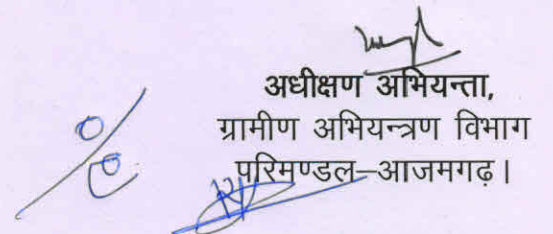 अधीक्षण अभियन्ता,
ग्रामीण अभियन्त्रण विभाग
परिमण्डल–आजमगढ़।